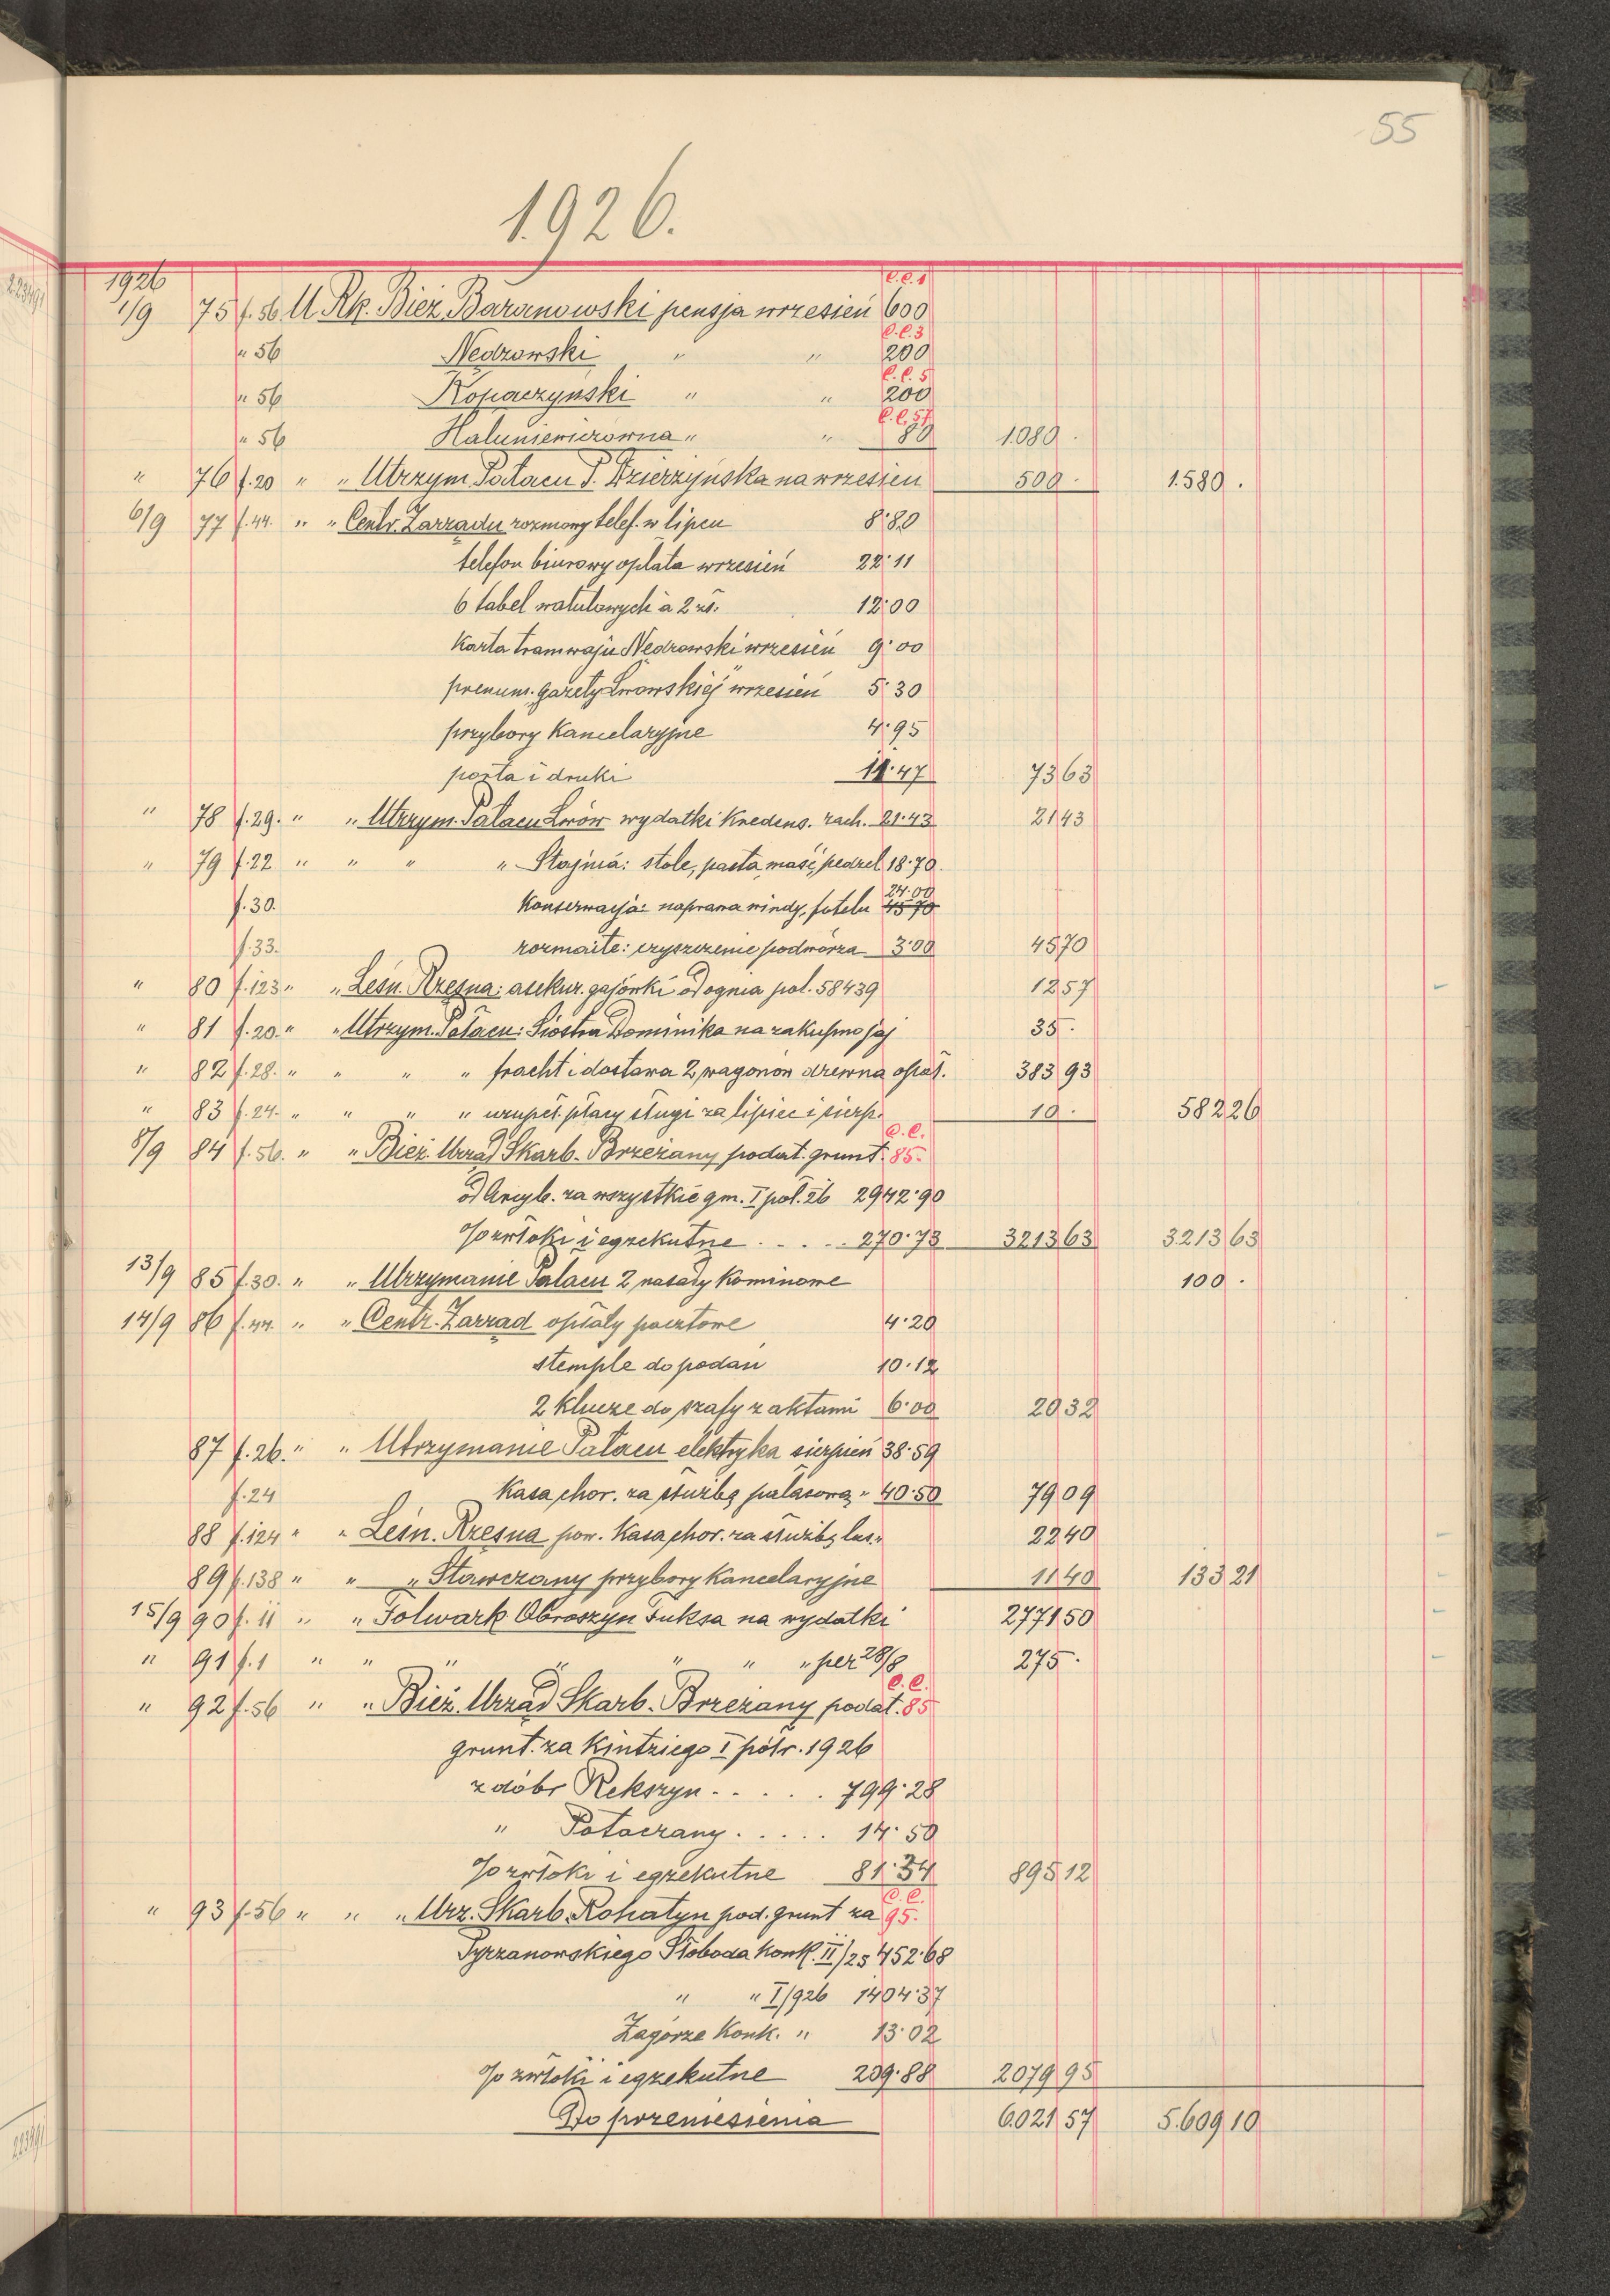 55
1926.
1926 C.C.1
1/9 75 f.56 U Rk. Bież. Baranowski pensja wrzesień 600
C.C.3
" 56 Nedzowski " " 200
C.C.5
" 56 Kopaczyński " " 200
C.C.57
" 56 Haluniewiczówna " " 80 1.080 .
" 76 f.20 " " Utrzym. Pałacu P. Dzierżyńska na wrzesień 500 . 1.580 .
6/9 77 f.44. " " Centr. Zarządu rozmowy telef. w lipcu 8.80
telefon biurowy opłata wrzesień 22.11
6 tabel walutowych à 2 zł. 12.00
Karta tramwaju Nedzowski wrzesień 9.00
prenum. "gazety Lwowskiej" wrzesień 5.30
przybory Kancelaryjne 4.95
porta i druki 11.47 73 63
" 78 f.29. " " Utrzym. Pałacu Lwów wydatki Kredens. rach. 21.43 21 43
" 79 f.22 " " " " Stajnia: stole, pasta, maść, pędzel 18.70
24.00
f.30. Konserwacja: naprawa windy, fotelu 45 70
f.33. rozmaite: czyszczenie podwórza 3.00 45 70
" 80 f.123 " " Leśn. Rzęsna: asekur. gajówki od ognia pol. 58439 12 57
" 81 f.20. " " Utrzym. Pałacu: Siostra Dominika na zakupno jaj 35 .
" 82 f.28. " " " " fracht i dostawa 2 wagonów drzewa opał. 383 93
" 83 f.24. " " " " uzupeł. płacy sługi za lipiec i sierp. 10 . 582 26
C.C.
8/9 84 f.56. " " Bież. Urząd Skarb. Brzeżany podat. grunt. 85.
od Arcyb. za wszystkie gm. I poł. 26 2942.90
% zwłoki i egzekutne . . . . . 270.73 3213 63 3213 63
13/9 85 f.30. " " Utrzymanie Pałacu 2 nasady Kominowe 100 .
14/9 86 f.44. " " Centr. Zarząd opłaty pocztowe 4.20
stemple do podań 10.12
2 Klucze do szafy z aktami 6.00 20 32
87 f.26. " " Utrzymanie Pałacu elektryka sierpień 38.59
f.24 Kasa chor. za służbę pałacową " 40.50 79 09
88 f.124 " " Leśn. Rzęsna pow. Kasa chor. za służbę las. " 22 40
89 f.138 " " " Stawczany przybory Kancelaryjne 11 40 133 21
15/9 90 f.11 " " Folwark Obroszyn Fuksa na wydatki 2771 50
" 91 f.1 " " " " " " " per 28/8 275 .
C.C.
" 92 f.56 " " Bież. Urząd Skarb. Brzeżany podat. 85
grunt. za Kintziego I półr. 1926
z dóbr Rekszyn . . . . . 799.28
" Potoczany . . . . . 14.50
% zwłoki i egzekutne 81.34 895 12
C.C.
" 93 f.56 " " " Urz. Skarb. Rohatyn pod. grunt za 95.
Tyrzanowskiego Słoboda Konk. II/25 452.68
" " I/926 1404.37
Zagórze Konk. " 13.02
% zwłoki i egzekutne 209.88 2079 95
Do przeniesienia 6.021 57 5.609 10